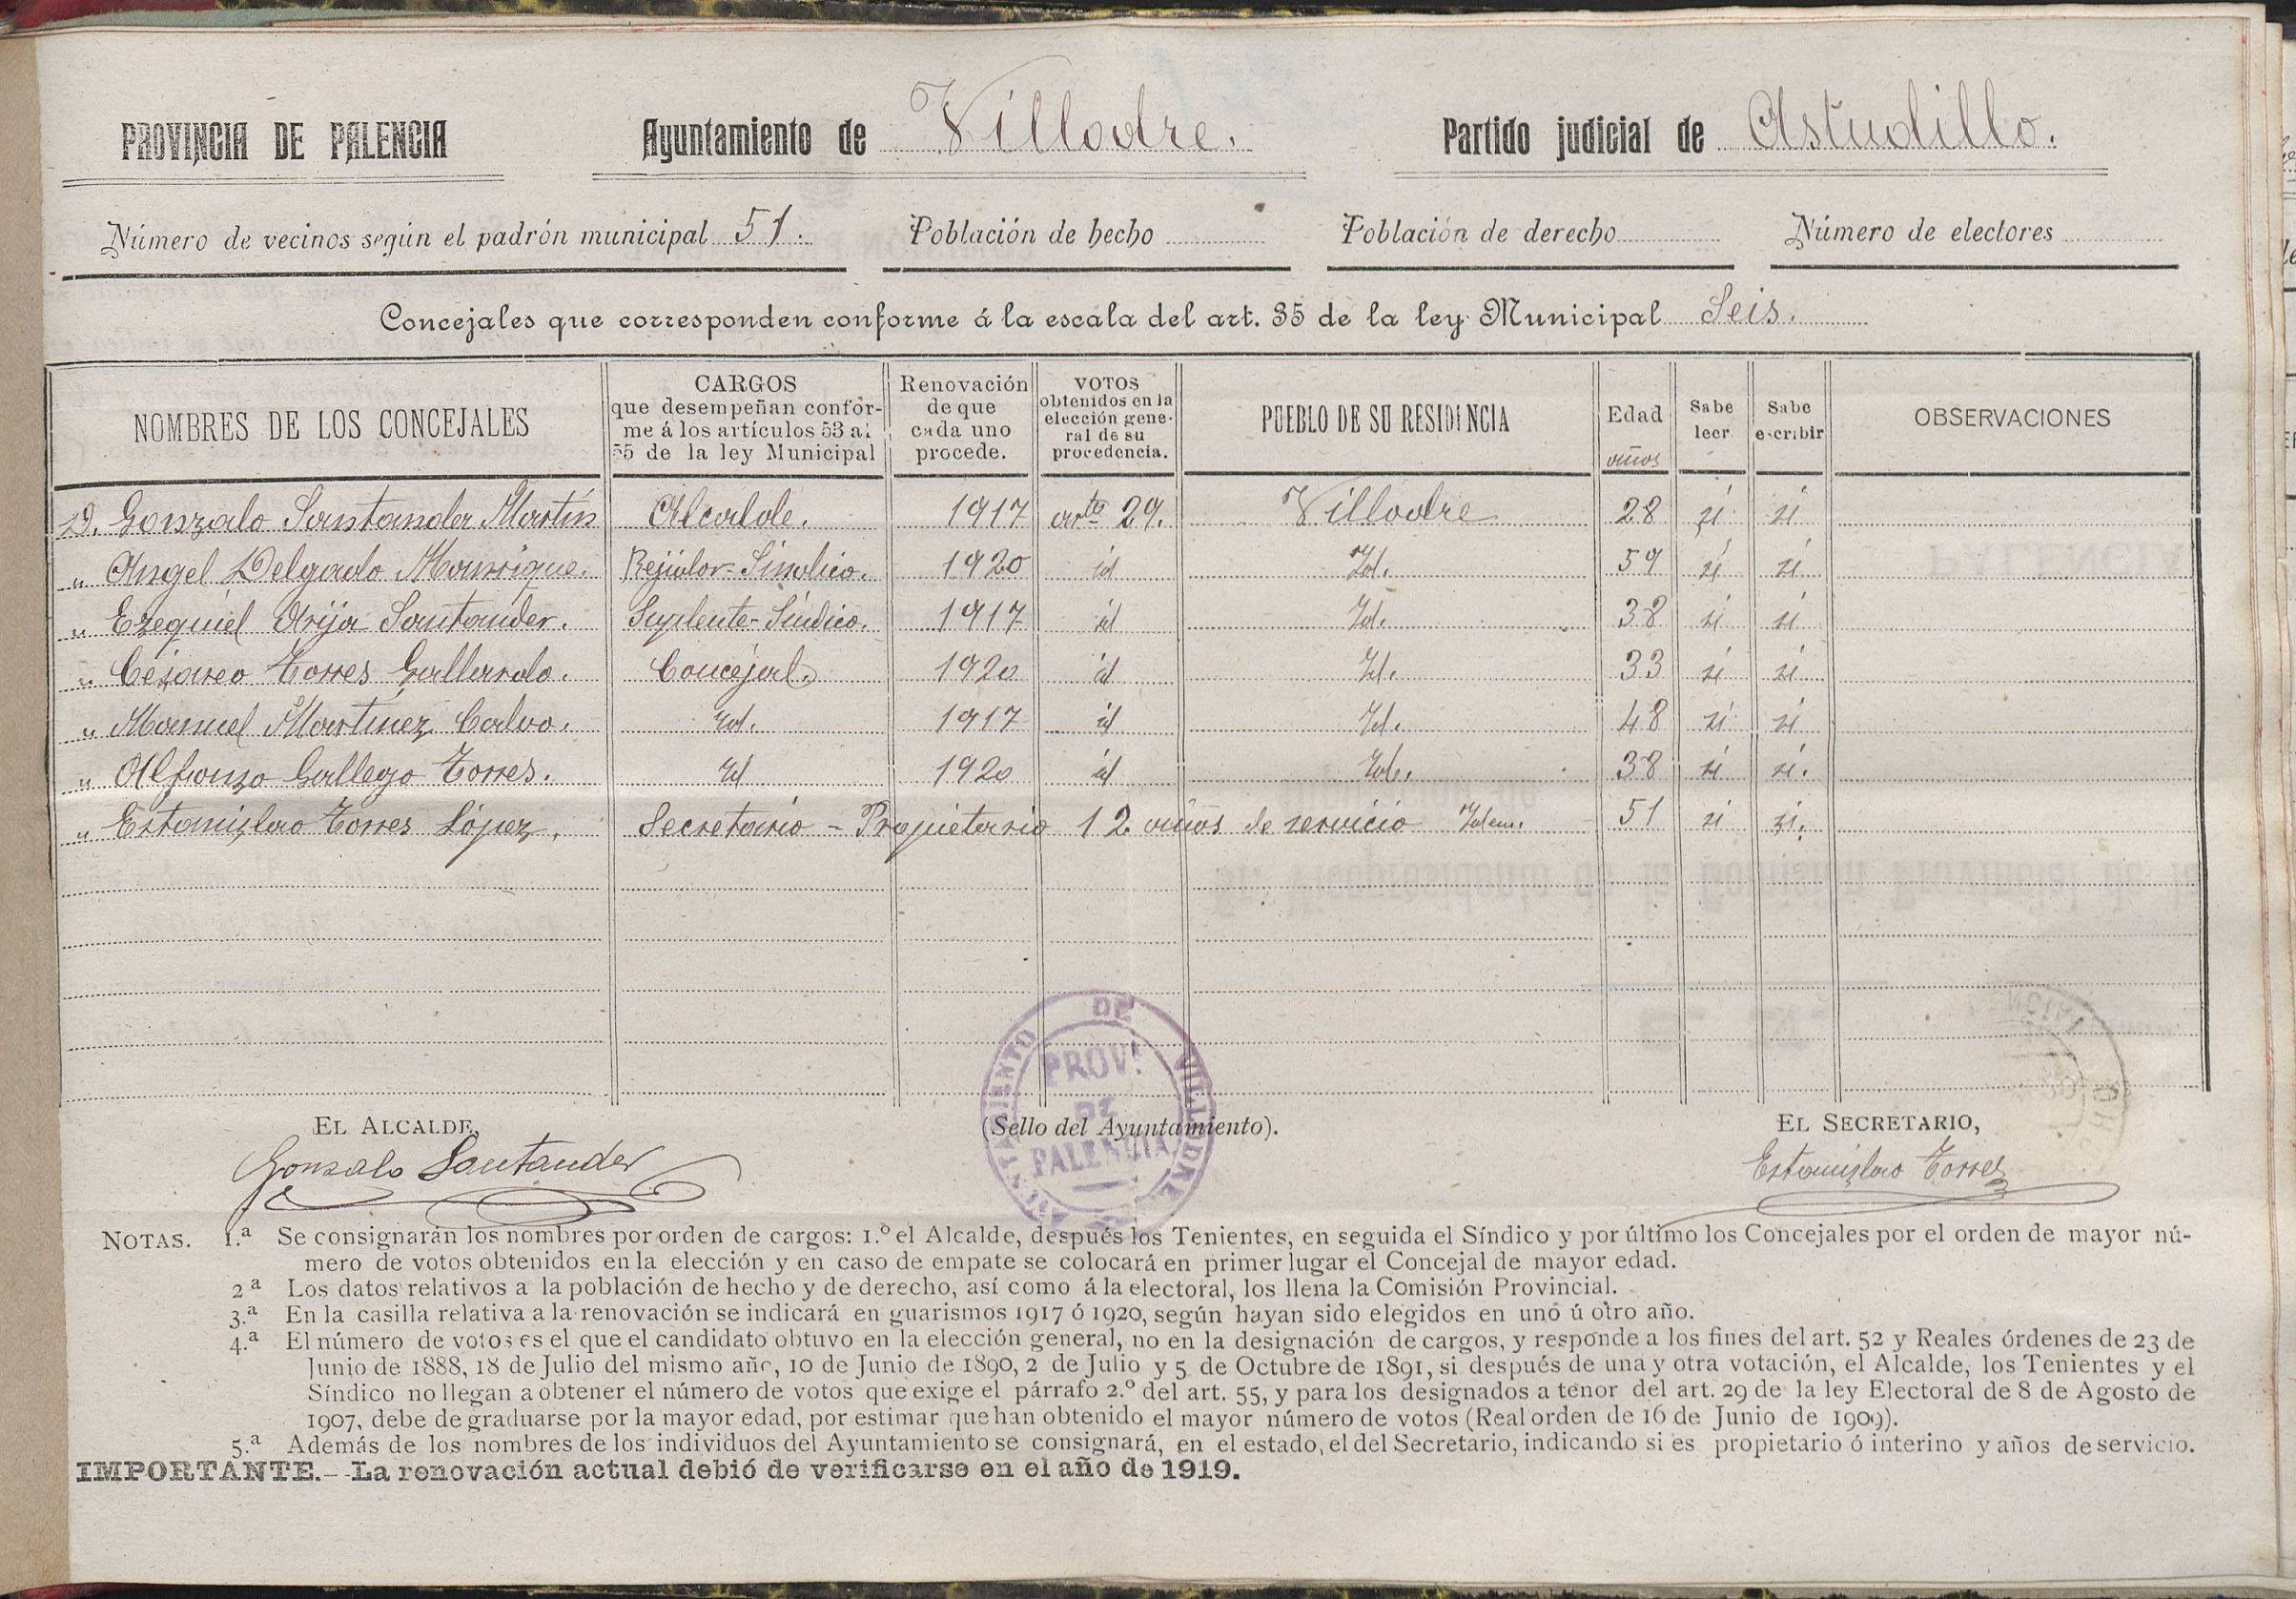 PROVINCIA DE PALENCIA Ayuntamiento de Villodre. Partido judicial de Astudillo.
Número de vecinos según el padrón municipal 51. Población de hecho Población de derecho Número de electores
Concejales que corresponden conforme á la escala del art. 35 de la ley Municipal Seis.
NOMBRES DE LOS CONCEJALES CARGOS que desempeñan confor-me á los artículos 53 al 55 de la ley Municipal Renovación de que cada uno procede. VOTOS obtenidos en la elección gene-ral de su procedencia. PUEBLO DE SU RESIDENCIA Edad años Sabe leer Sabe escribir OBSERVACIONES
D. Gonzalo Santander Martín Alcalde. 1917 arto 29. Villodre 28 si si
" Angel Delgado Manrique. Rejidor-Sindico. 1920 id Id. 59 si si
" Ezequiel Arija Santander. Suplente-Síndico. 1917 id Id. 38 si si
" Césareo Torres Gallardo. Concejal. 1920 id Id. 33 si si
" Manuel Martínez Calvo. Id. 1917 id Id. 48 si si
" Alfonso Gallego Torres. Id 1920 id Id. 38 si si.
" Estanislao Torres López. Secretario - Propietario 12 años de servicio Idem. 51 si si.
EL ALCALDE, (Sello del Ayuntamiento). EL SECRETARIO,
AYUNTAMIENTO DE VILLODRE
PROV. DE PALENCIA
Gonzalo Santander Estanislao Torres
NOTAS. 1.ª Se consignarán los nombres por orden de cargos: 1.º el Alcalde, después los Tenientes, en seguida el Síndico y por último los Concejales por el orden de mayor nú-
mero de votos obtenidos en la elección y en caso de empate se colocará en primer lugar el Concejal de mayor edad.
2ª Los datos relativos a la población de hecho y de derecho, así como á la electoral, los llena la Comisión Provincial.
3.ª En la casilla relativa a la renovación se indicará en guarismos 1917 ó 1920, según hayan sido elegidos en uno ú otro año.
4.ª El número de votos es el que el candidato obtuvo en la elección general, no en la designación de cargos, y responde a los fines del art. 52 y Reales órdenes de 23 de
Junio de 1888, 18 de Julio del mismo año, 10 de Junio de 1890, 2 de Julio y 5 de Octubre de 1891, si después de una y otra votación, el Alcalde, los Tenientes y el
Síndico no llegan a obtener el número de votos que exige el párrafo 2.º del art. 55, y para los designados a tenor del art. 29 de la ley Electoral de 8 de Agosto de
1907, debe de graduarse por la mayor edad, por estimar que han obtenido el mayor número de votos (Real orden de 16 de Junio de 1909).
5.ª Además de los nombres de los individuos del Ayuntamiento se consignará, en el estado, el del Secretario, indicando si es propietario ó interino y años de servicio.
IMPORTANTE.—La renovación actual debió de verificarse en el año de 1919.